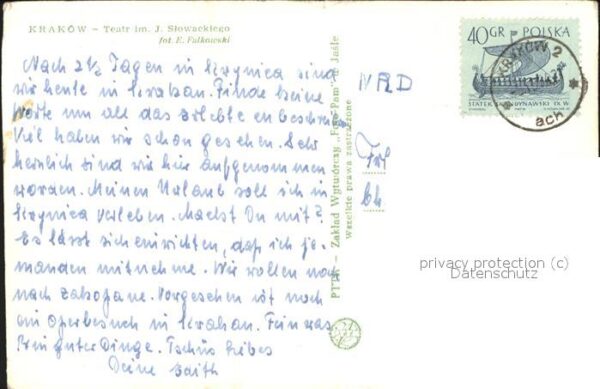 KRAKÓW – Teatr im. J. Słowackiego
fot. E. Falkowski
Nach 2½ Tagen in Krynica sind
wir heute in Krakau. Finde keine
Worte um all das erlebte zu beschreiben
Viel haben wir schon gesehen. Sehr
herzlich sind wir hier aufgenommen
worden. Meinen Urlaub soll ich in
Krynica verleben. Machst Du mit?
Es lässt sich einrichten, daß ich je-
manden mitnehme. Wir wollen noch
nach Zakopane. Vorgesehen ist noch
ein Opernbesuch in Krakau.
guter Dinge. Tschüs liebes
Deine
PTTK – Zakład Wytwórczy „Foto-Pam" w Jaśle
Wszelkie prawa zastrzeżone
NRD
40GR POLSKA
STATEK SKANDYNAWSKI IX W.
KRAKÓW 2
ach
privacy protection (c)
Datenschutz